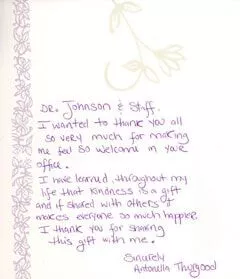 Dr. Johnson & Staff.
I wanted to thank you all
so very much for making
me feel so welcome in your
office.
I have learned throughout my
life that kindness is a gift
and if shared with others it
makes everyone so much happier.
I thank you for sharing
this gift with me.
Sincerely
Antonella